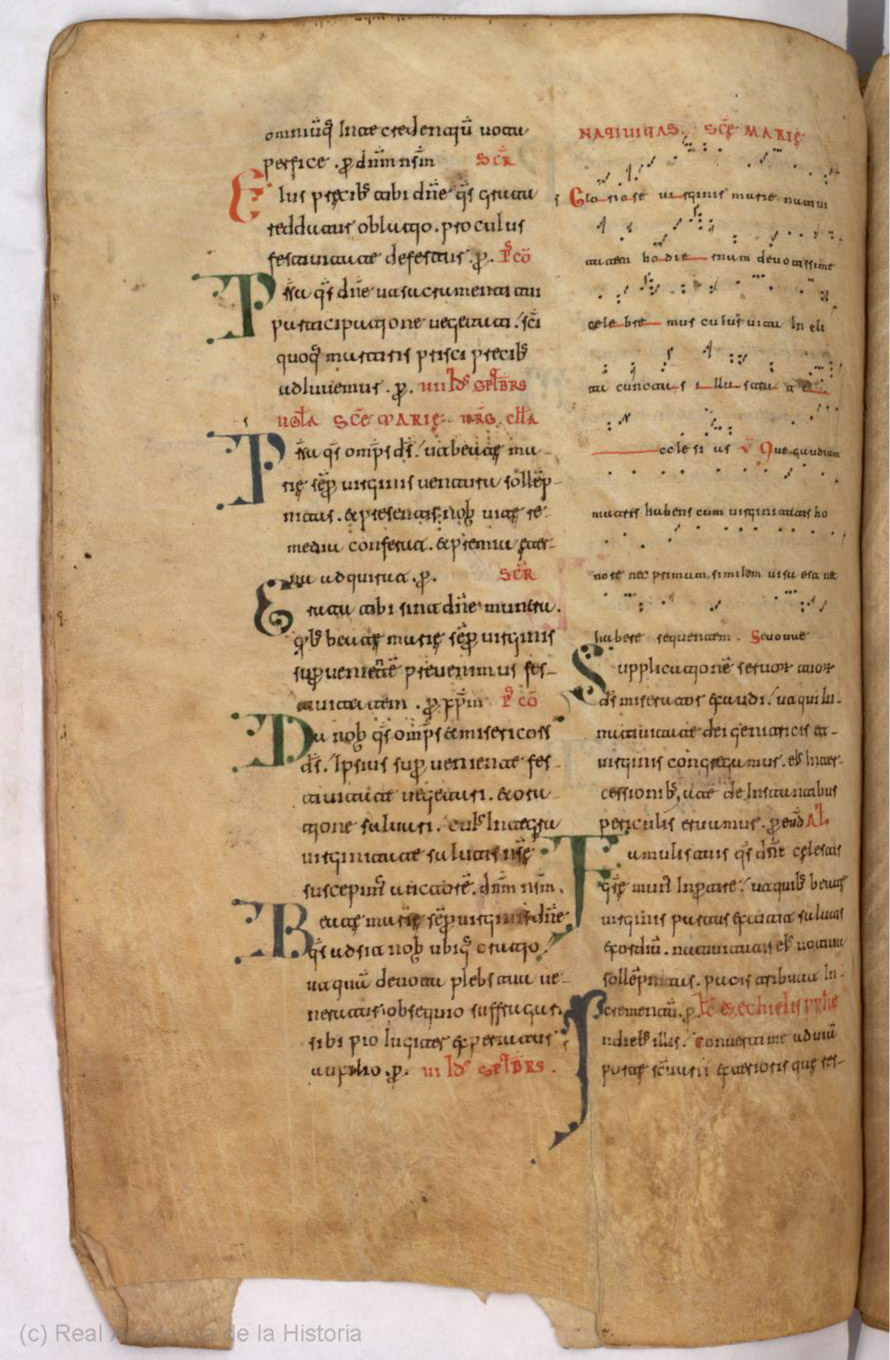 omniūq; In te credentiū uota
perfice . ꝑ dn̄m nr̄m SCR̄
Eius precib; tibi dn̄e q̄s grata
reddatur oblatio . pro cuius
festiuitate defertur . ꝑ. P̄ CŌ
Pr̄a q̄s dn̄e ut sacramenti tui
participatione uegetati . sc̄i
quoq; martiris prisci precib;
adiuuemur . ꝑ. UIII ID̄S SEPT̄BRS
UIGĪLA SC̄E MARIĘ
Pr̄a q̄s omp̄s d̄s . ut beatę ma-
rię sēp uirginis ueneranda sollēp-
nitas . & presentis nob̄ uitę re-
media conferat . & premia ęter-
na adquirat . ꝑ. SCR̄
Grata tibi sint dn̄e munera .
q̄b; beatę marię sēp uirginis
suꝑuenientē preuenimus fes-
tiuitatem . ꝑ P̄ CŌ
Da nob̄ q̄s omp̄s & misericors
d̄s . Ipsius suꝑuenientę fes-
tiuitate uegetari . & ora-
tione saluari . cui; Integra
uirginitate salutis nr̄ę
suscepim; auctorē . dn̄m nr̄m .
Beatę marię sēp uirginis dn̄e
q̄s adsit nob̄ ubiq; oratio .
ut quā deuota plebs tua ue-
neratur obsequio suffragari
sibi pio Iugiter & perpetuo
auxilio . ꝑ. UI ID̄S SEPT̄BRS .
NATIUITAS SC̄E MARIĘ
Gloriose uirginis marie natiui
tatem hodiernam deuotissime
celebremus cuius uita In cli
ta cunctas Illustrat ę
cclesias V̄ Que gaudium
matris habens cum uirginitatis ho
nore nec primam similem uisa est nec
habere sequentem . Seuouae
Supplicationē seruor tuor
d̄s miserator exaudi . ut qui In
natiuitate dei genitricis et
uirginis congregamur . ei; Inter-
cessionib; a te de Instantibus
periculis eruamur . ꝑ eūd AL̄
Famulis tuis q̄s dn̄e cęlestis
grę mun; Inpartire . ut quib; beatę
uirginis partus extitit salutis
exordiū . natiuitatis ei; uotiua
sollēpnitas . pacis tribuat In-
crementū . ꝑ. Lc̄ ezechielis pphe
In dieb; illis . Conuertit me ad uiā
portę sc̄uarii exterioris que res-